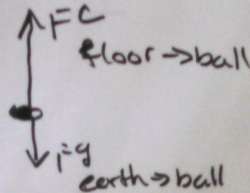 FC
floor→ball
Fg
earth→ball